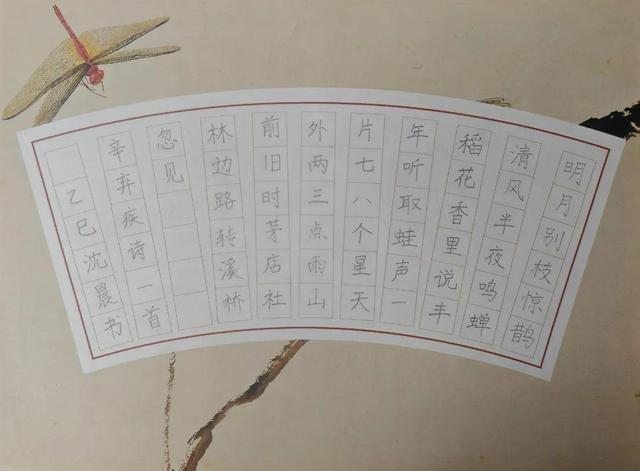 明月别枝惊鹊
清风半夜鸣蝉
稻花香里说丰
年听取蛙声一
片七八个星天
外两三点雨山
前旧时茅店社
林边路转溪桥
忽见
辛弃疾诗一首
乙巳沈晨书